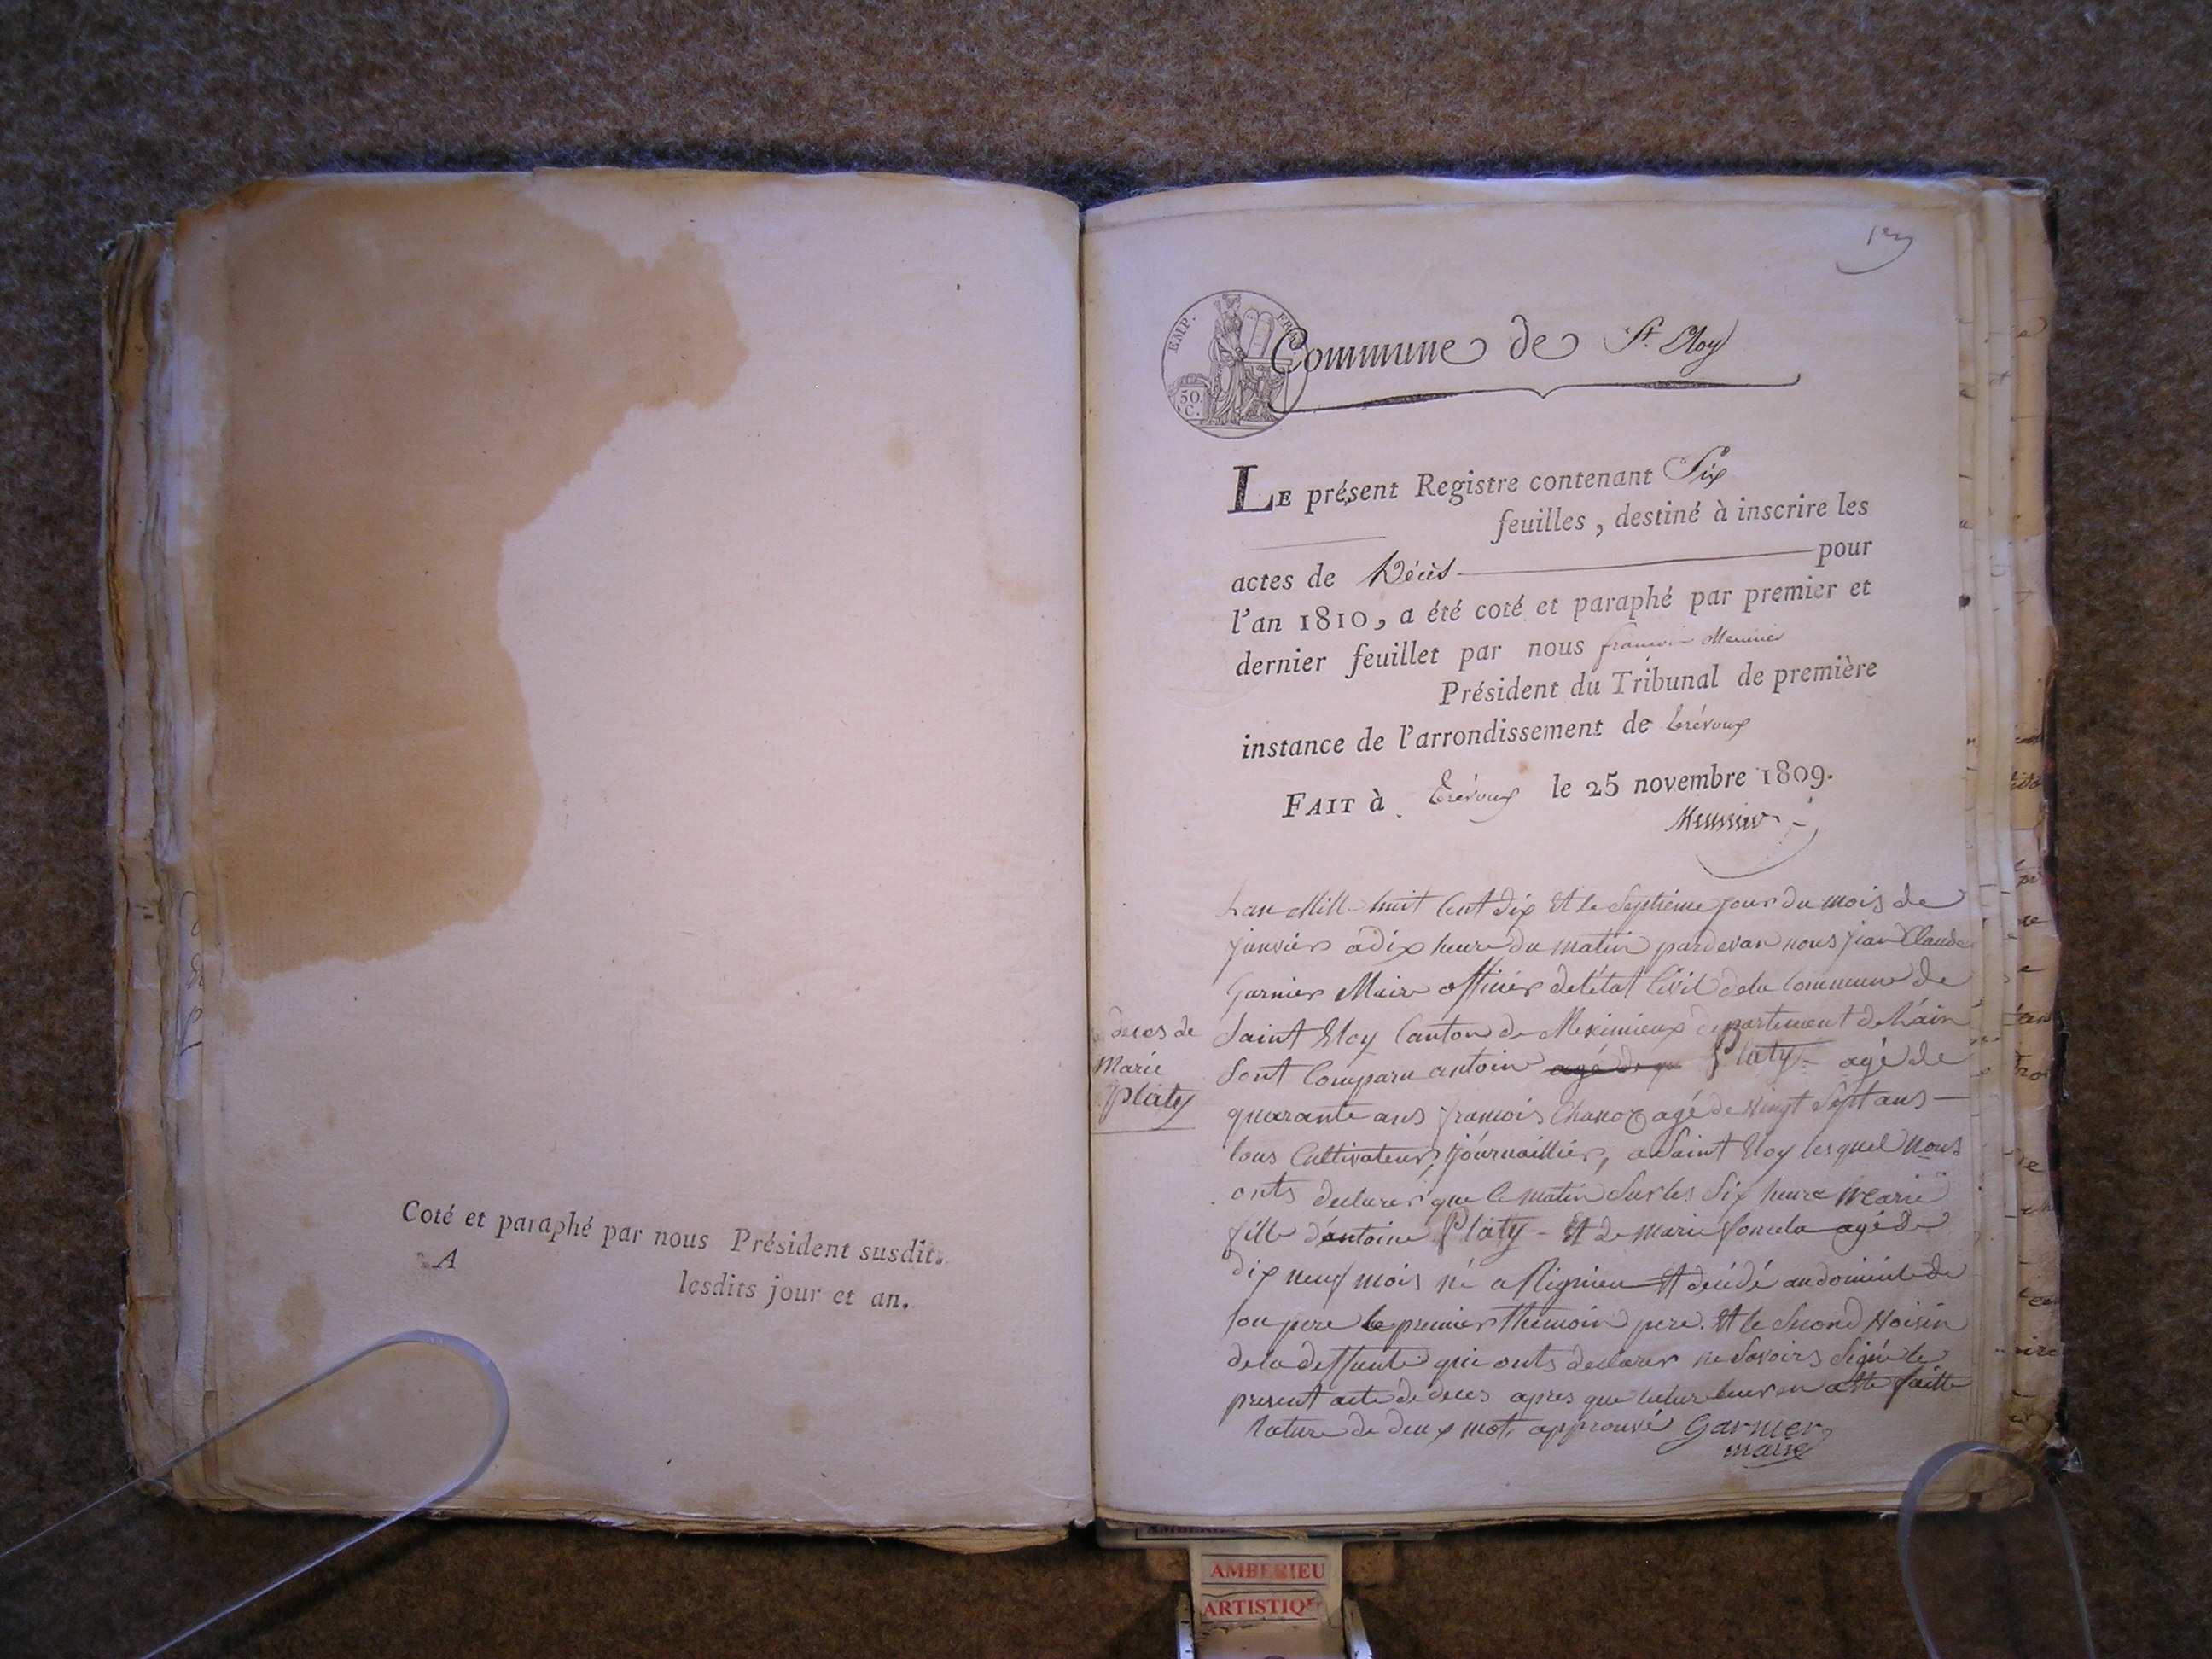 Coté et paraphé par nous Président susdit.
A
lesdits jour et an.
1er
EMP. FR
50.
C.
Commune de St. Eloy
LE présent Registre contenant Six
feuilles, destiné à inscrire les
actes de Décès pour
l'an 1810, a été coté et paraphé par premier et
dernier feuillet par nous françois Meunier
Président du Tribunal de première
instance de l'arrondissement de Trévoux
FAIT à Trévoux le 25 novembre 1809.
Meunier
deces de
Marie
Platy
Lan Mill huit Cent dix Et le Septieme jour du mois de
janvier a dix heure du matin pardevan nous jean Claude
Garnier Maire officier de l'état Civil de la Commune de
Saint Eloy Canton de Meximieux departement de L'ain
Sont Comparu antoin agé de qu Platy agé de
quarante ans francois agé de Vingt Sept ans
tous Cultivateur, journaillier, a Saint Eloy lesquel nous
onts declarer que le matin Sur les Six heure Marie
fille d'antoine Platy - Et de Marie agé de
dix neuf mois né a Et décédé au domicile de
son pere le premier themoin pere. Et le Second Voisin
de la deffunte qui onts declarer ne Savoirs Signé le
present acte de deces apres que lature leur en atte faitte
rature de deux mot approuvé Garnier
maire
AMBERIEU
ARTISTIQU